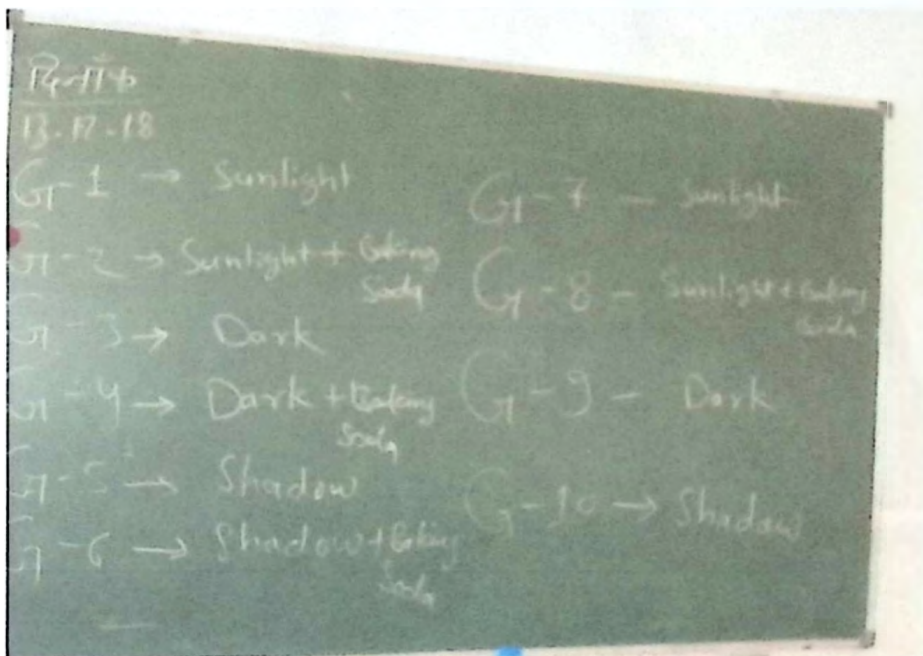 13-12-18
G-1 → Sunlight
G-2 → Sunlight + Baking
Soda
G-3 → Dark
G-4 → Dark + Baking
Soda
G-5 → Shadow
G-6 → Shadow + Baking
Soda
G-7 — Sunlight
G-8 — Sunlight + Baking
Soda
G-9 — Dark
G-10 → Shadow